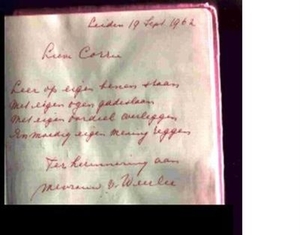 Leiden 19 Sept 1962
Lieve Corrie
Leer op eigen benen staan
Met eigen ogen gadeslaan
Met eigen oordeel overleggen
En moedig eigen mening zeggen
Ter herinnering aan
Mevrouw